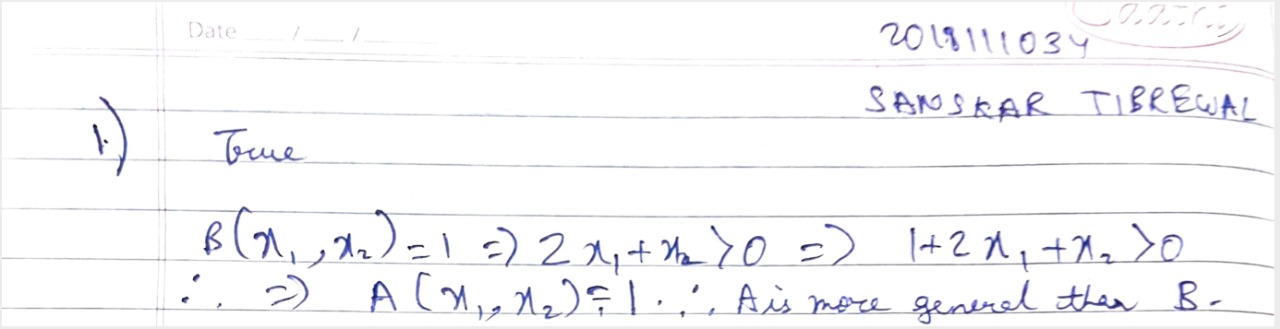 Date __/__/__
2018111034
SANSKAR TIBREWAL
1.) True
B(x₁, x₂) = 1 ⇒ 2x₁ + x₂ > 0 ⇒ 1+2x₁ + x₂ > 0
∴ ⇒ A(x₁, x₂) = 1. ∴ A is more general than B.